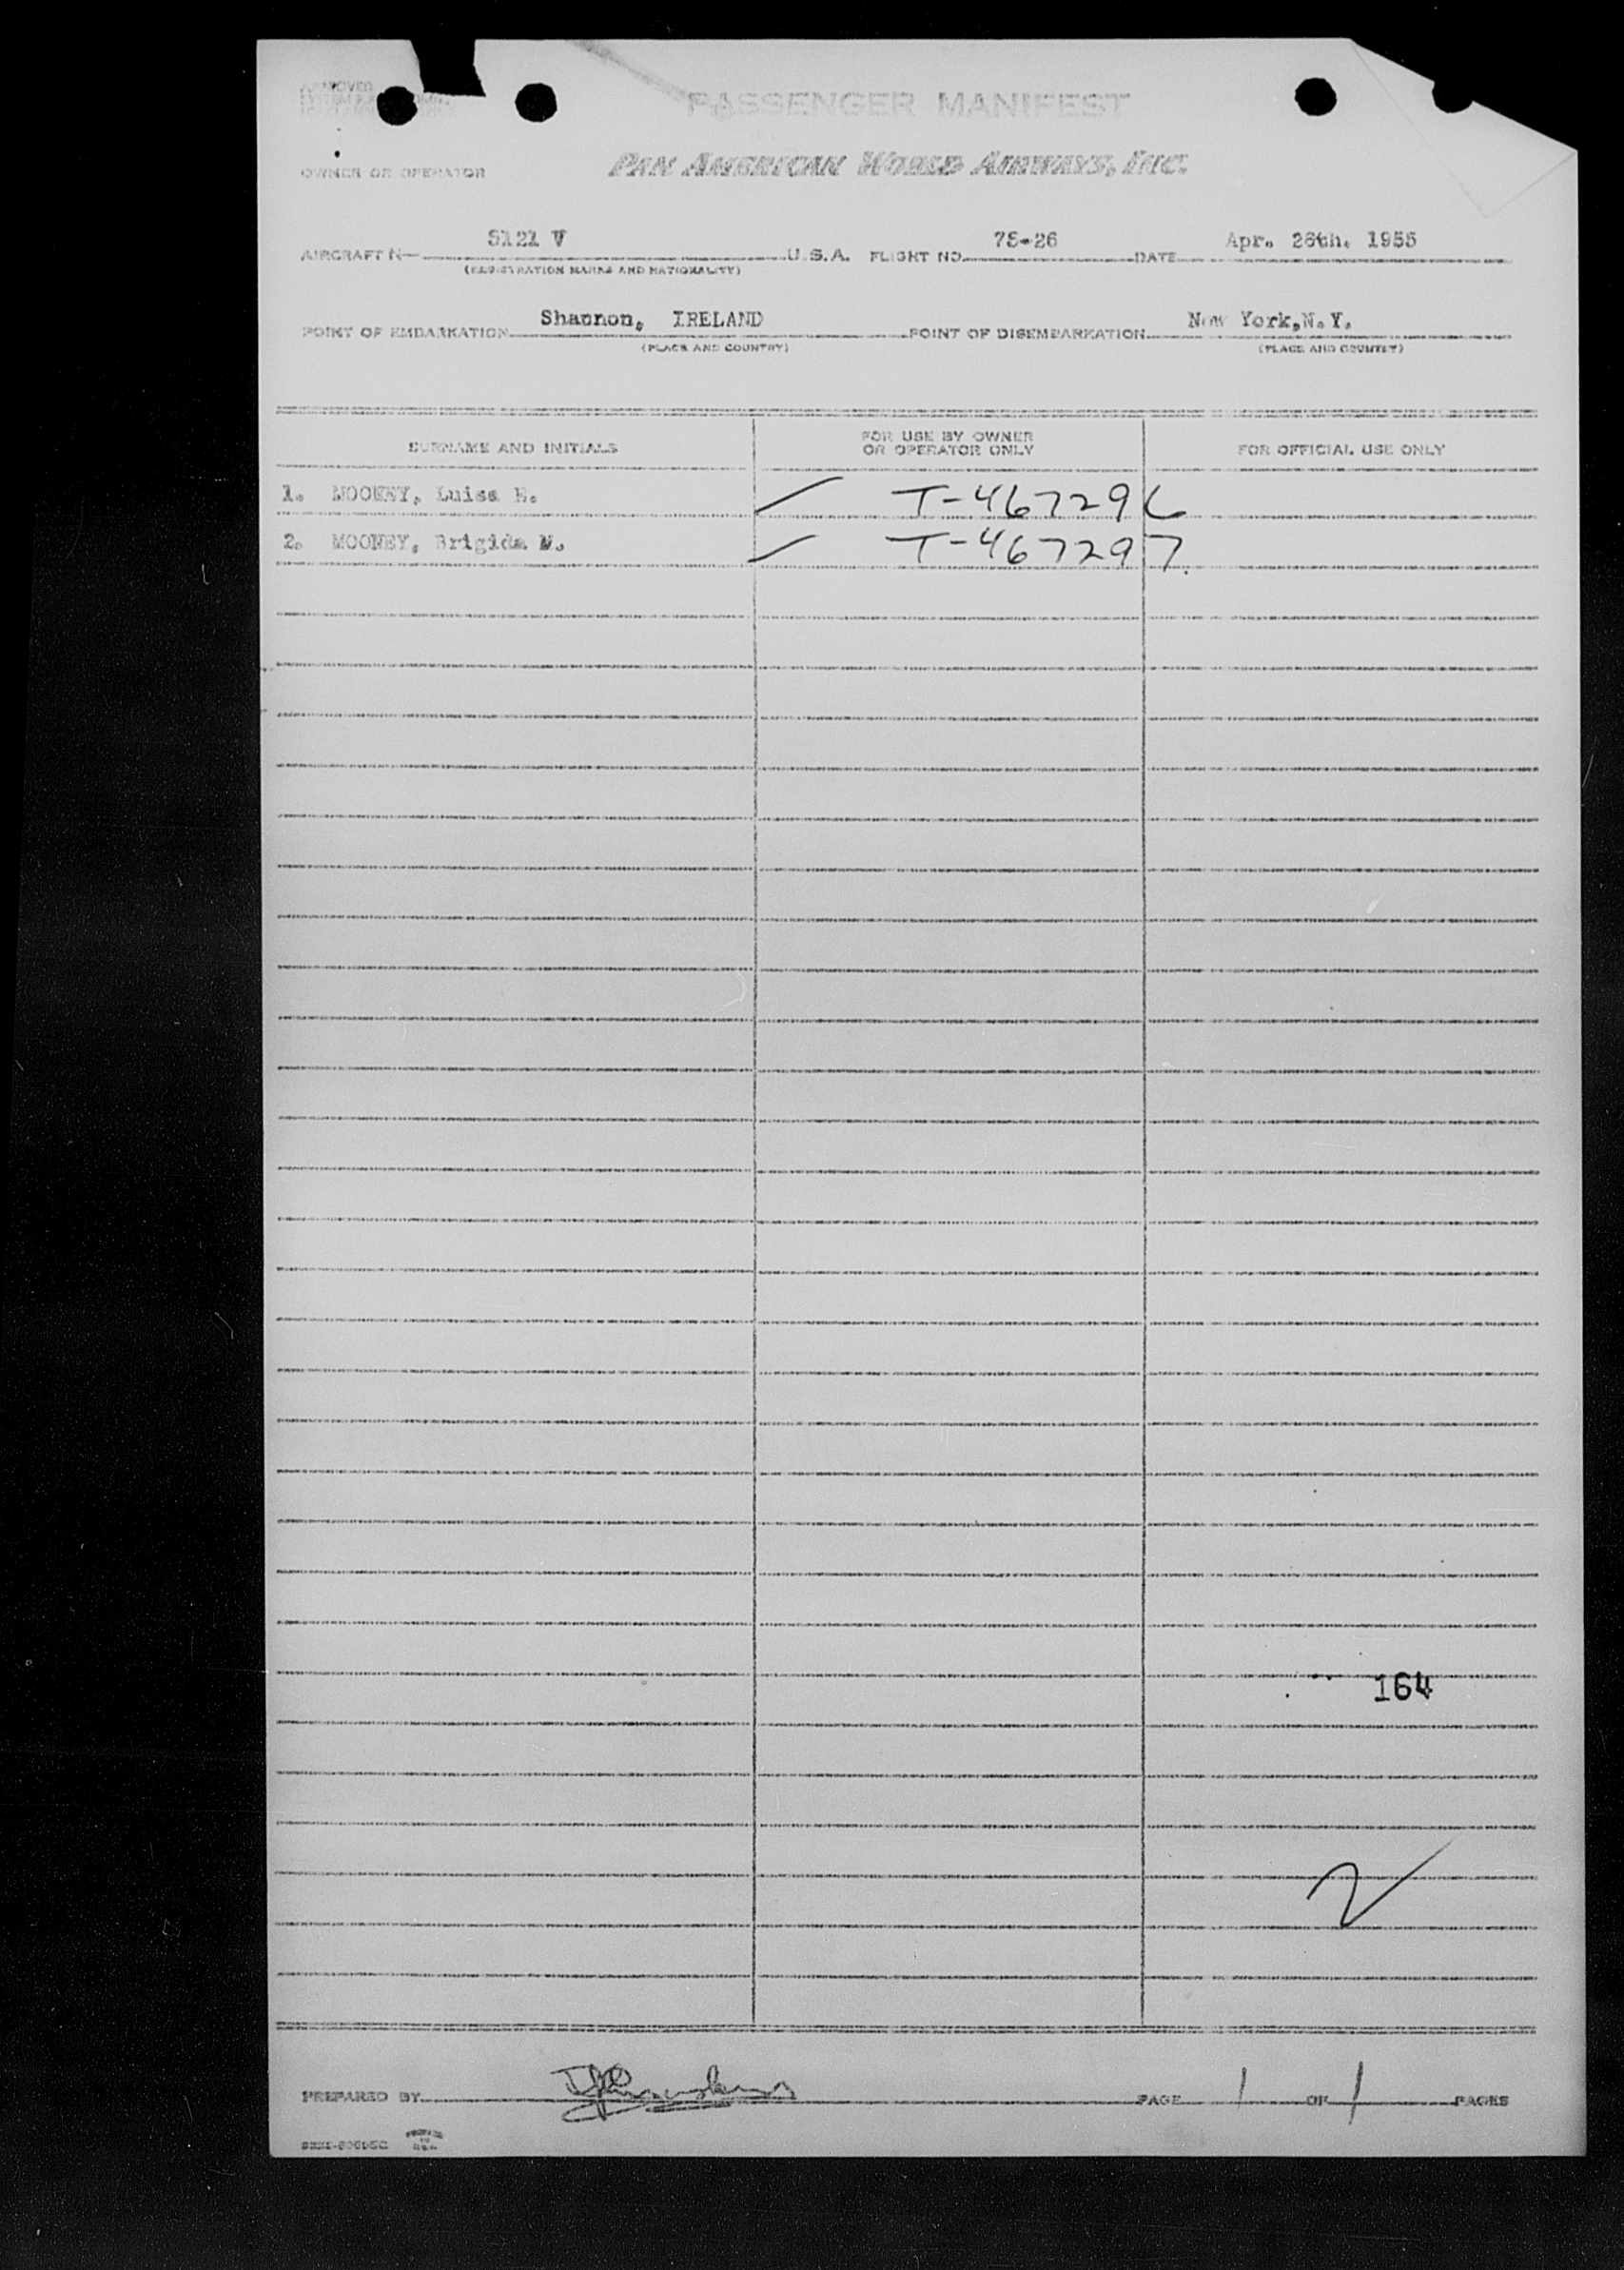 PASSENGER MANIFEST
PAN AMERICAN WORLD AIRWAYS, INC.
OWNER OR OPERATOR
AIRCRAFT N— 5121 V U.S.A. FLIGHT NO. 75-26 DATE Apr. 26th. 1955
(REGISTRATION MARKS AND NATIONALITY)
POINT OF EMBARKATION Shannon, IRELAND POINT OF DISEMBARKATION New York, N.Y.
(PLACE AND COUNTRY) (PLACE AND COUNTRY)
SURNAME AND INITIALS FOR USE BY OWNER OR OPERATOR ONLY FOR OFFICIAL USE ONLY
1. MOONEY, Luisa E. ✓ T-467296
2. MOONEY, Brigida M. ✓ T-467297
164
2
PREPARED BY PAGE 1 OF 1 PAGES